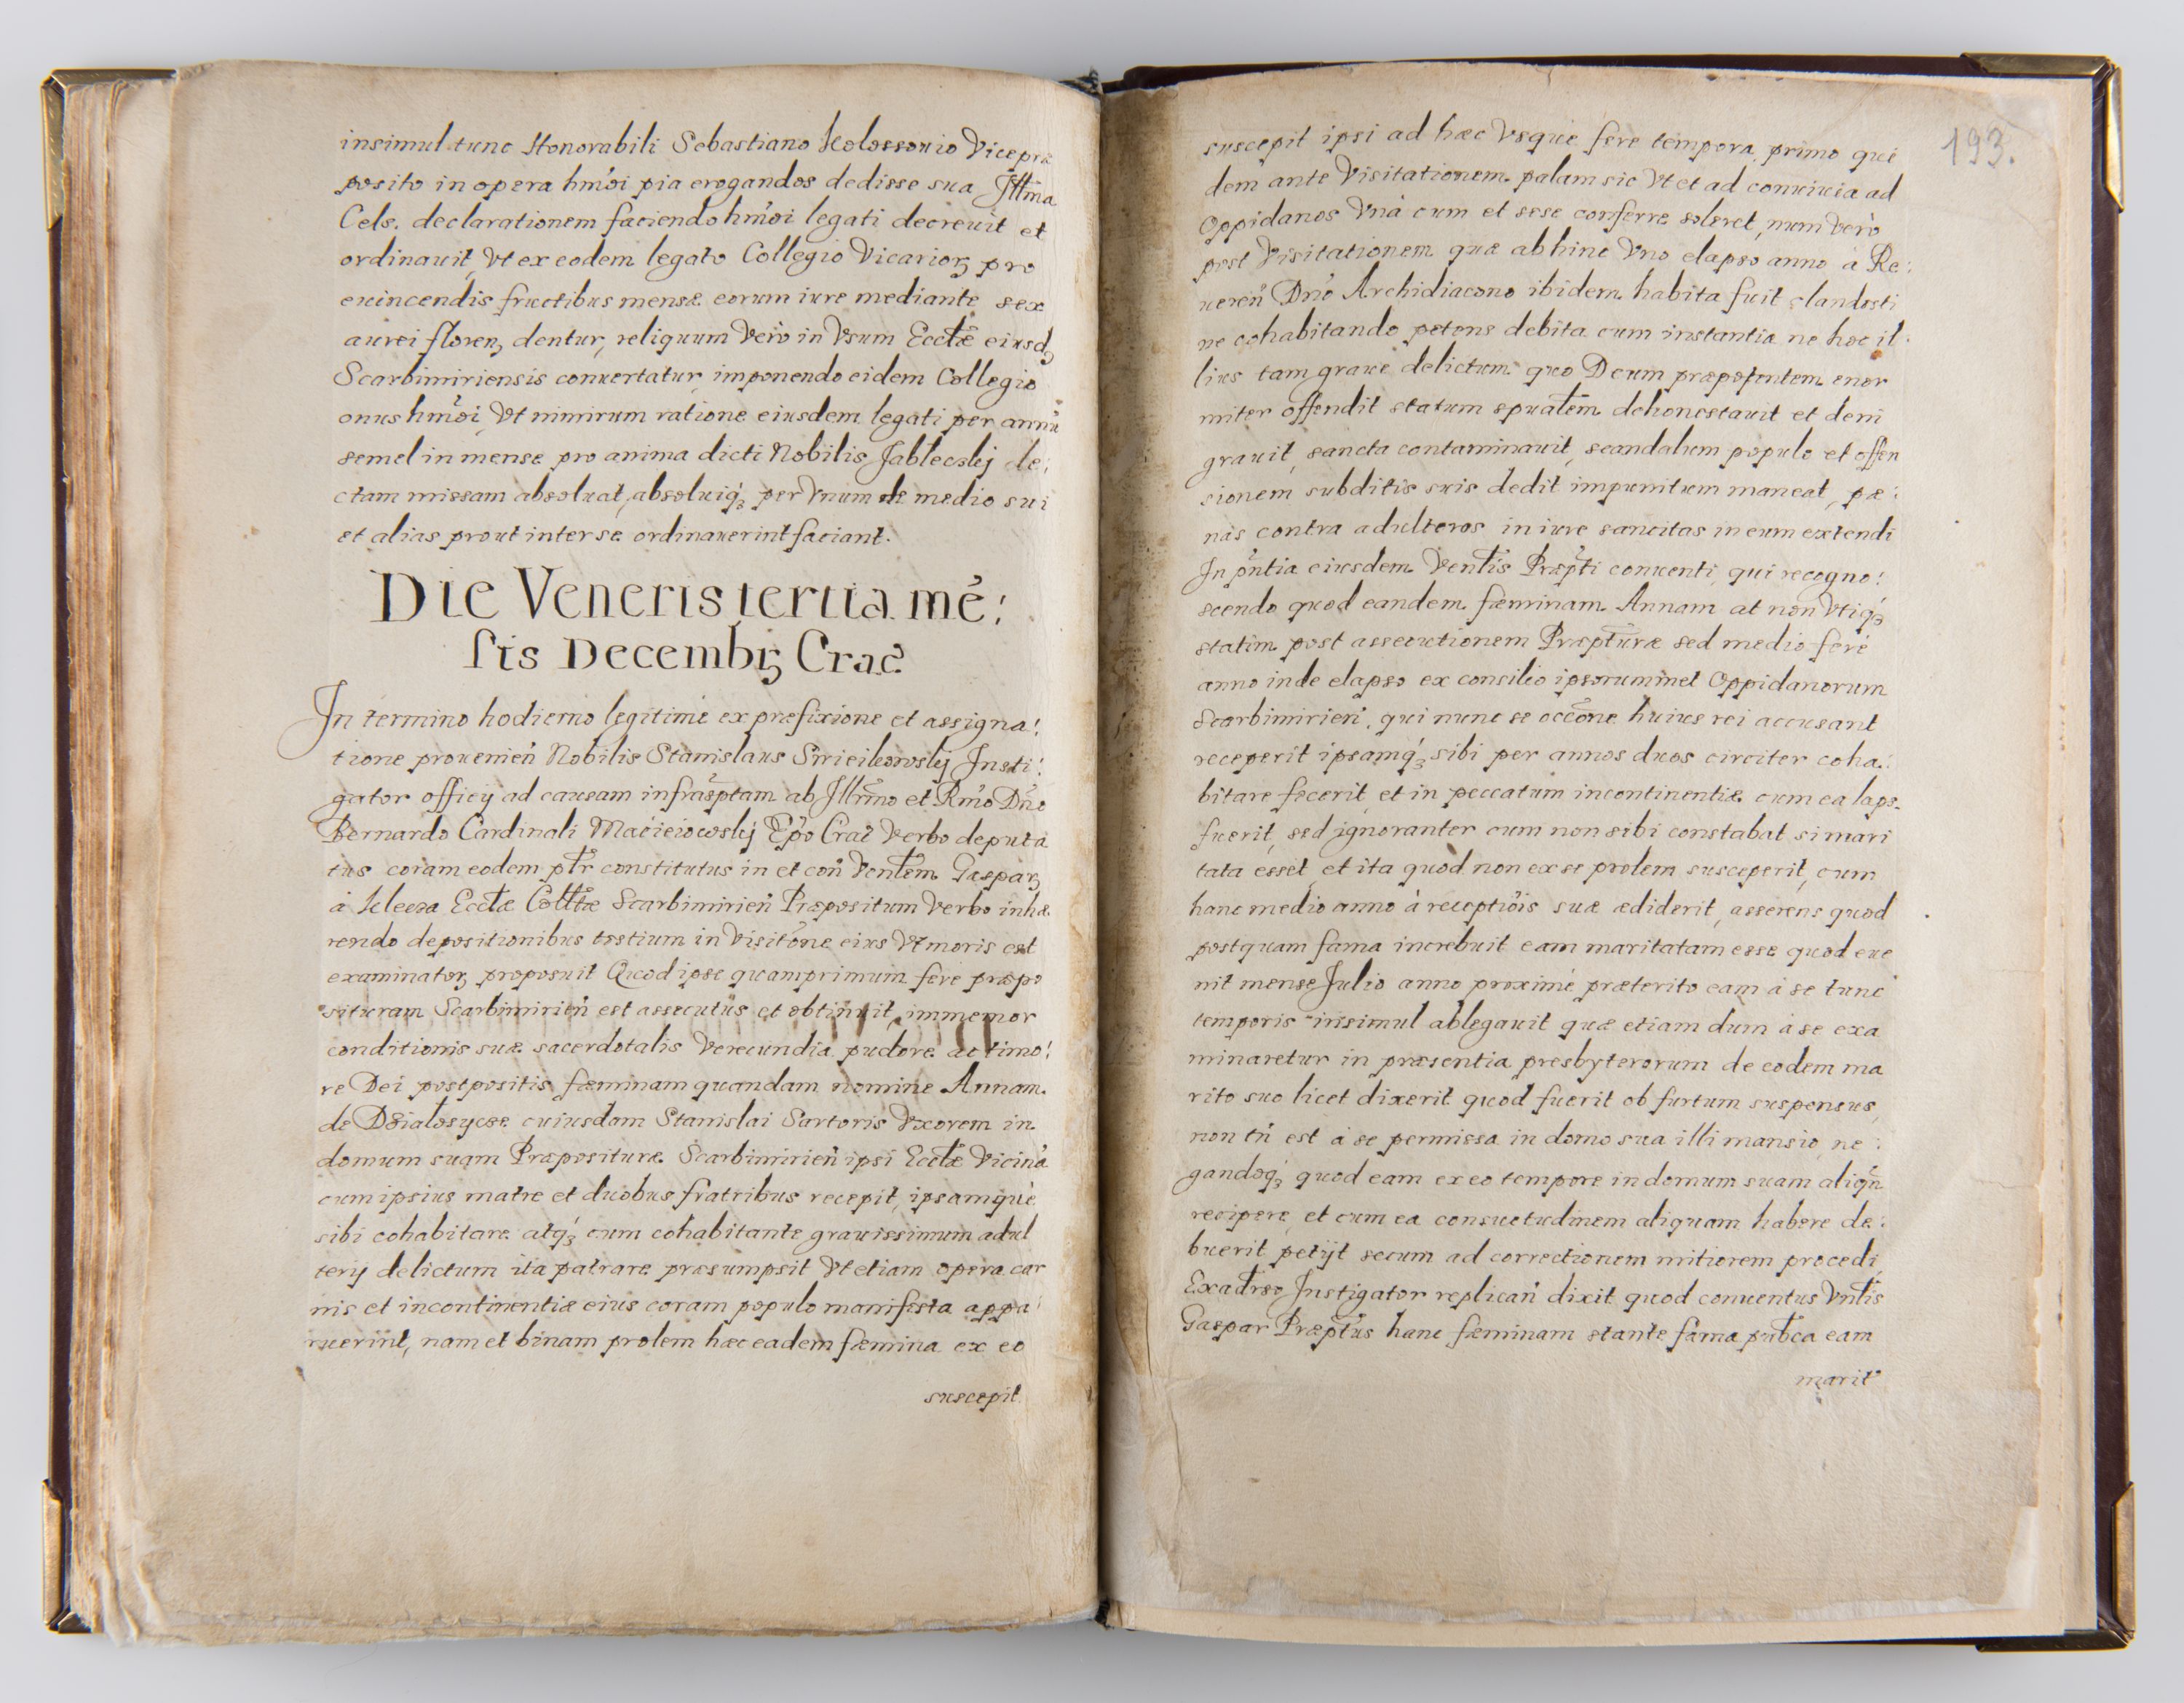 insimul tunc Honorabili Sebastiano Kolossowio Viceprę
posito in opera hm̃oi pia erogandos dedisse sua Illma
Cels. declarationem faciendo hm̃oi legati decreuit et
ordinauit, Vt ex eodem legato Collegio Vicarioꝝ pro
euincendis fructibus mensæ eorum iure mediante sex
aurei floren, dentur, reliquum Verò in Vsum Ecctæ eiusdꝫ
Scarbimiriensis conuertatur, imponendo eidem Collegio
onus hm̃oi, Vt nimirum ratione eiusdem legati per annũ
semel in mense pro anima dicti Nobilis Jableczkij le:
ctam missam absoluat, absoluiq́ꝫ per Vnum de medio sui
et alias prout inter se ordinauerint faciant.
Die Veneris tertia mẽ:
sis Decembrꝫ Crac̃
In termino hodierno legitime ex præfixione et assigna:
tione prouenien̄ Nobilis Stanislaus Insti:
gator officij ad causam infrasptam ab Illmo et Rmo Dño
Bernardo Cardinali Macieiowskij Ep̃o Crac̃ Verbo deputa
tus coram eodem ptr constitutus in et con̄ Ventem Gasparꝫ
à Klecza Ecctæ Collttæ Scarbimirien̄ Præpositum Verbo inhæ
rendo depositionibus testium in Visitõne eius Vt moris est
examinatoꝝ proposuit Quod ipse quamprimum fere præpo
situram Scarbimirien̄ est assecutus et obtinuit, immemor
conditionis suæ sacerdotalis Verecundia pudore ac timo:
re Dei postpositis, fæminam quandam nomine Annam
de Dzialoszyce cuiusdam Stanislai Sartoris Vxorem in
domum suam Præpositure Scarbimirien̄ ipsi Ecctæ Vicinã
cum ipsius matre et duobus fratribus recepit, ipsamque
sibi cohabitare atq́ꝫ cum cohabitante grauissimum adul
terij delictum ita patrare præsumpsit Vt etiam opera car
nis et incontinentiæ eius coram populo manifesta appa:
ruerint, nam et binam prolem hæc eadem fæmina ex eo
suscepit
193.
suscepit ipsi ad hæc Vsque fere tempora, primo qui
dem ante Visitationem palam sic Vt et ad conuiuia ad
Oppidanos Vnà cum et sese conferre soleret, nunc Verò
post Visitationem quæ ab hinc Vno elapso anno à Re:
ueren̄ Dño Archidiacono ibidem habita fuit clandesti
ne cohabitando petens debita cum instantia ne hoc il:
lius tam graue delictum quo Deum præpotentem enor
miter offendit statum spualem dehonestauit et deni
grauit, sancta contaminauit, scandalum populo et offen
sionem subditis suis dedit impunitum maneat, pæ:
nas contra adulteros in iure sancitas in eum extendi
In pñtia eiusdem Ventis Præpti conuenti, qui recogno:
scendo quod eandem fæminam Annam at non Vtiq́ꝫ
statim post assecutionem Præpturæ sed medio fere
anno inde elapso ex consilio ipsorummet Oppidanorum
Scarbimirien̄. qui nunc se occõne huius rei accusant
receperit ipsamq́ꝫ sibi per annos duos circiter coha:
bitare fecerit, et in peccatum incontinentiæ cum ea laps.
fuerit, sed ignoranter cum non sibi constabat si mari
tata esset, et ita quod non ex se prolem susceperit, cum
hanc medio anno à receptiõis suæ ædiderit, asserens quod
postquam fama increbuit eam maritatam esse quod eue
nit mense Julio anno proximè præterito eam à se tunc
temporis insimul ablegauit quæ etiam dum à se exa
minaretur in præsentia presbyterorum de eodem ma
rito suo licet dixerit quod fuerit ob furtum suspensus,
non tñ est à se permissa in domo sua illi mansio, ne:
gandoq́ꝫ quod eam ex eo tempore in domum suam aliqñ
recipere, et cum ea consuetudinem aliquam habere de:
buerit, petijt secum ad correctionem mitiorem procedi,
Exaduerso Instigator replican̄ dixit quod conuentus Vntis
Gaspar Præptus hanc fæminam stante fama pubca eam
marit